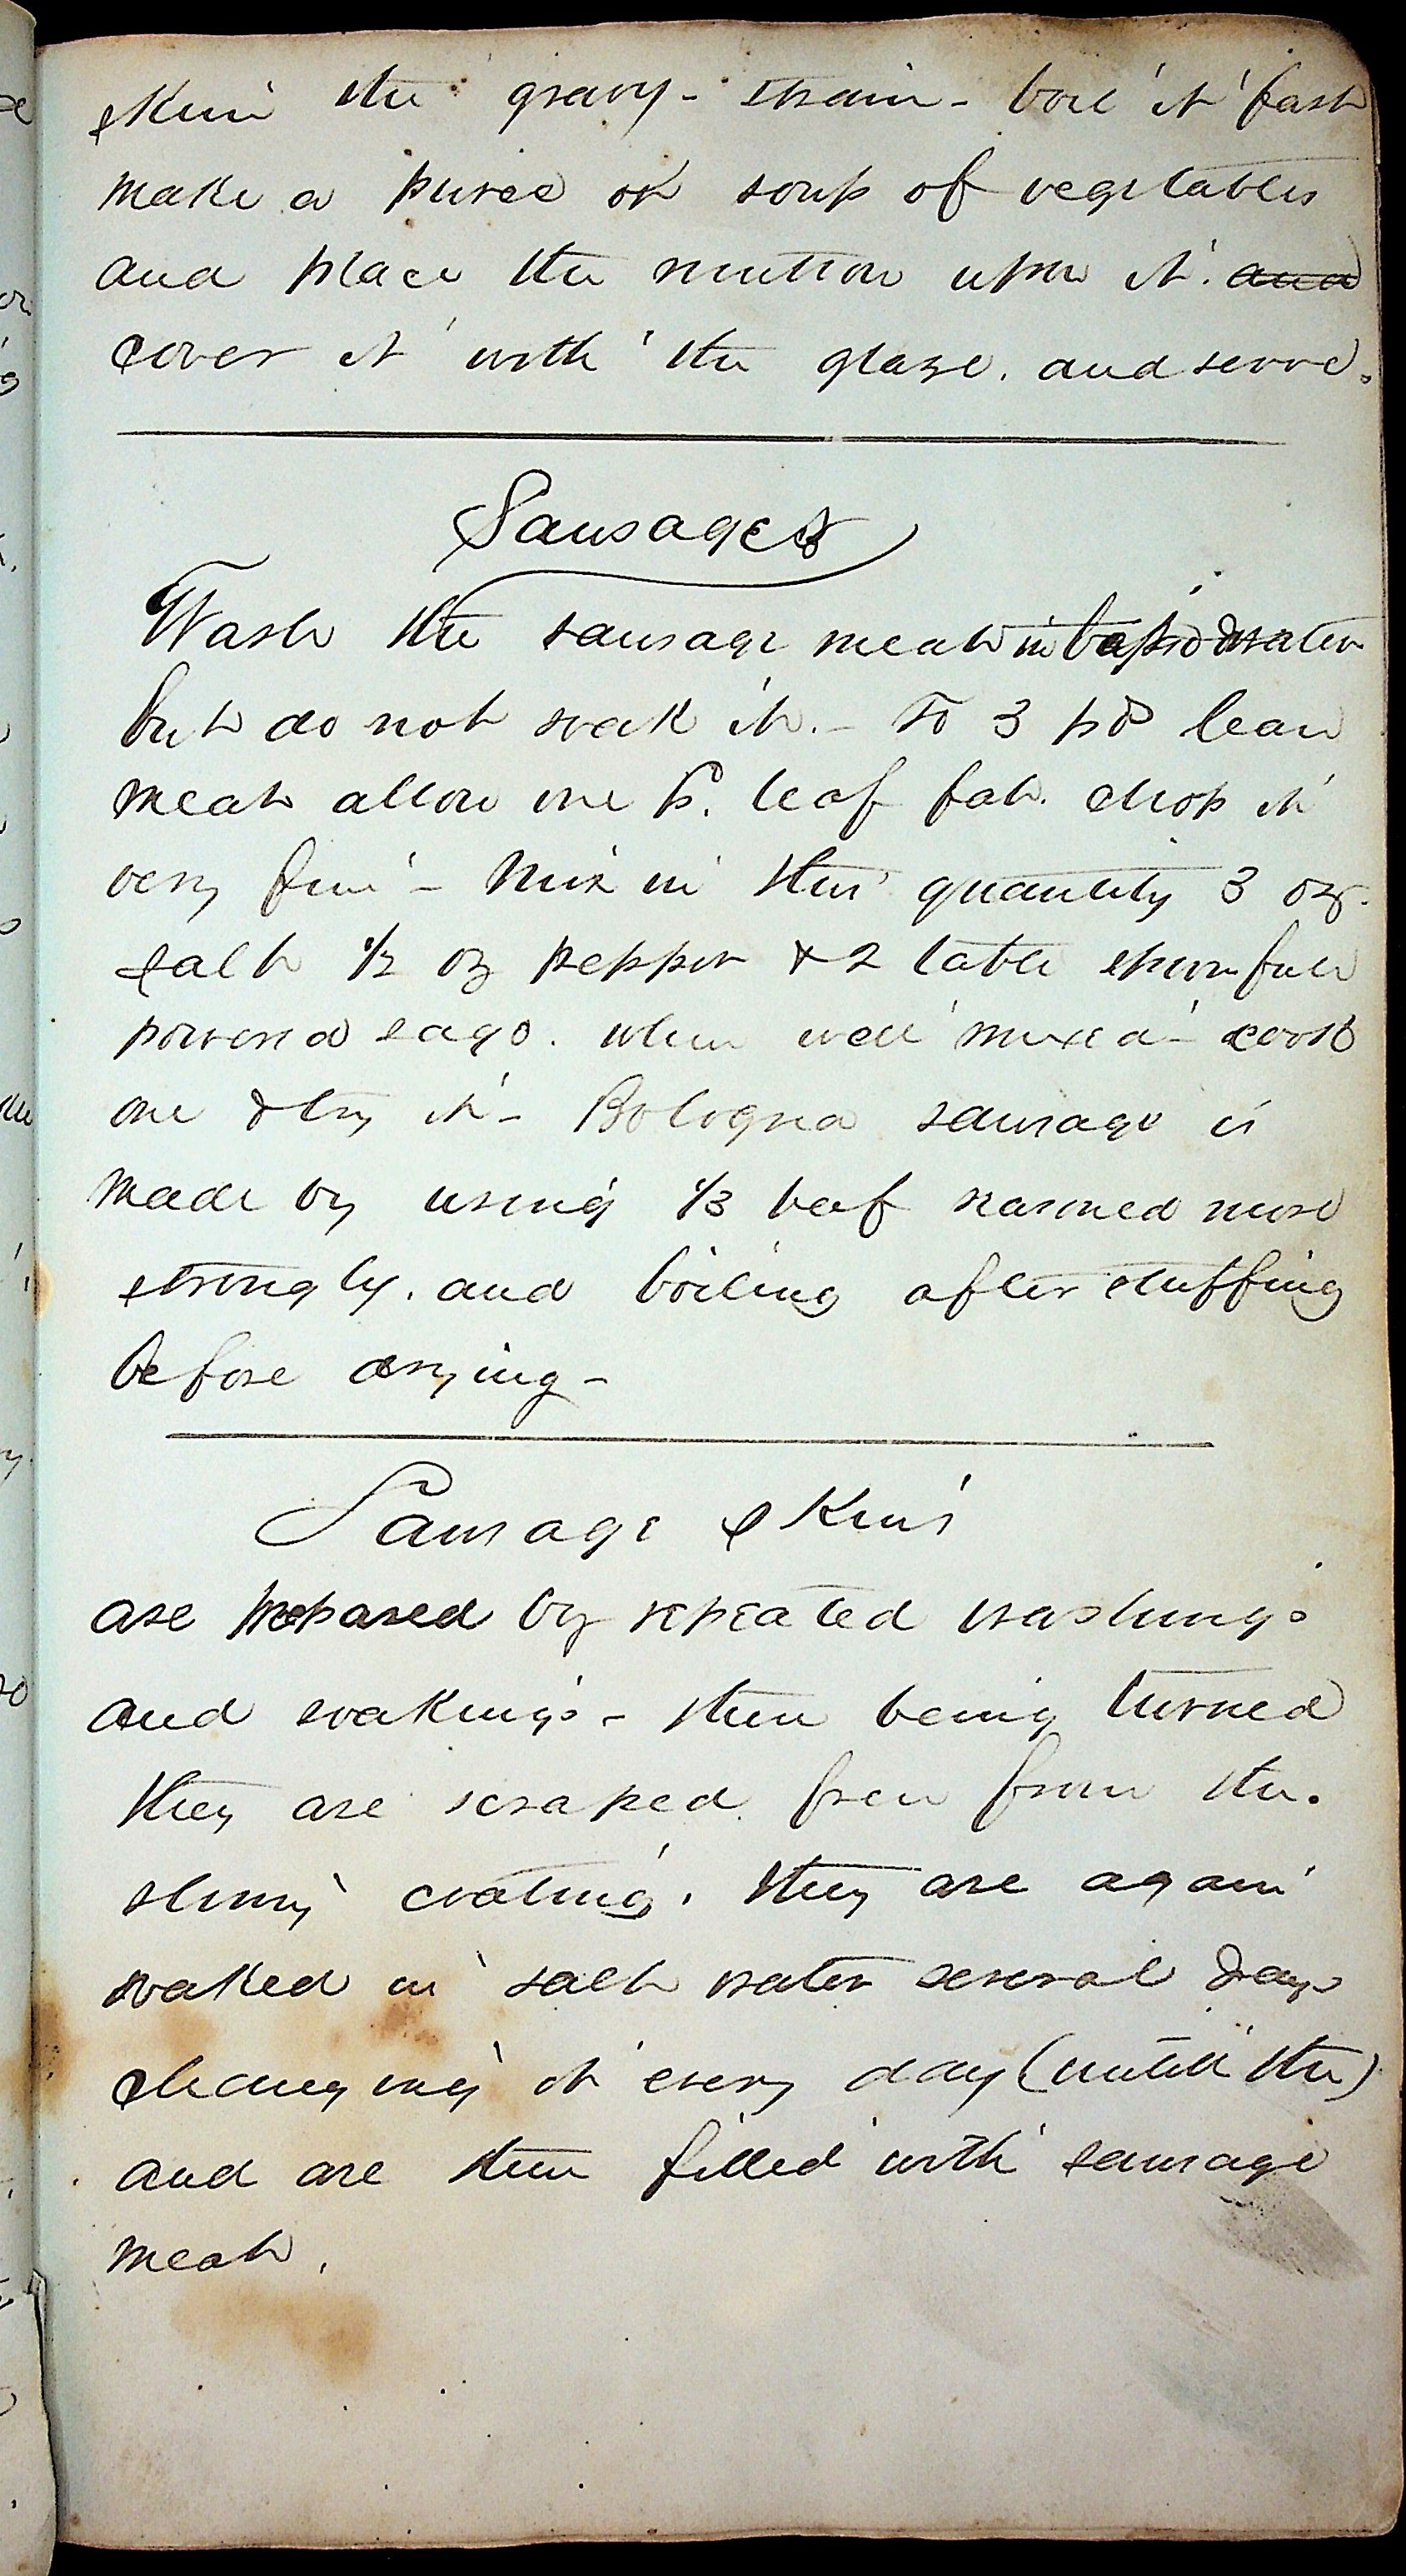 skim the gravy - strain - boil it fast
make a puree or soup of vegetables
and place the mutton upon it. and
cover it with the glaze. and serve.
Sausages
Wash the sausage meat in tepid water
but do not soak it. - To 3 pd lean
meat allow one p. leaf fat. chop it
very fine - Mix in this quantity 3 oz.
salt 1/2 oz pepper & 2 table spoonfull
powered sago. when well mixed - cook
one & try it - Bologna sausage is
made by using 1/3 beef seasoned more
strongly. and boiling after stuffing
before drying -
Sausage skins
are prepared by repeated washings
and soakings - then being turned
they are scraped free from the
slimy coating. they are again
soaked in salt water several days
changing it every day (untill the)
and are then filled with sausage
meat.